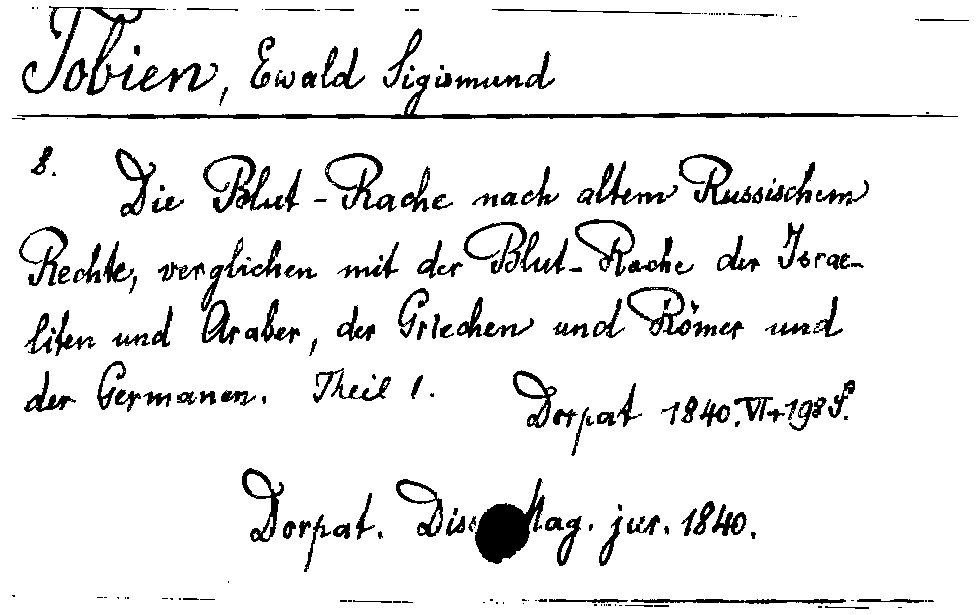 Tobien, Ewald Sigismund
8.
Die Blut-Rache nach altem Russischem
Rechte, verglichen mit der Blut-Rache der Israe-
liten und Araber, der Griechen und Römer und
der Germanen. Theil 1.
Dorpat 1840. VI+198 S.
Dorpat. Diss. Mag. jur. 1840.